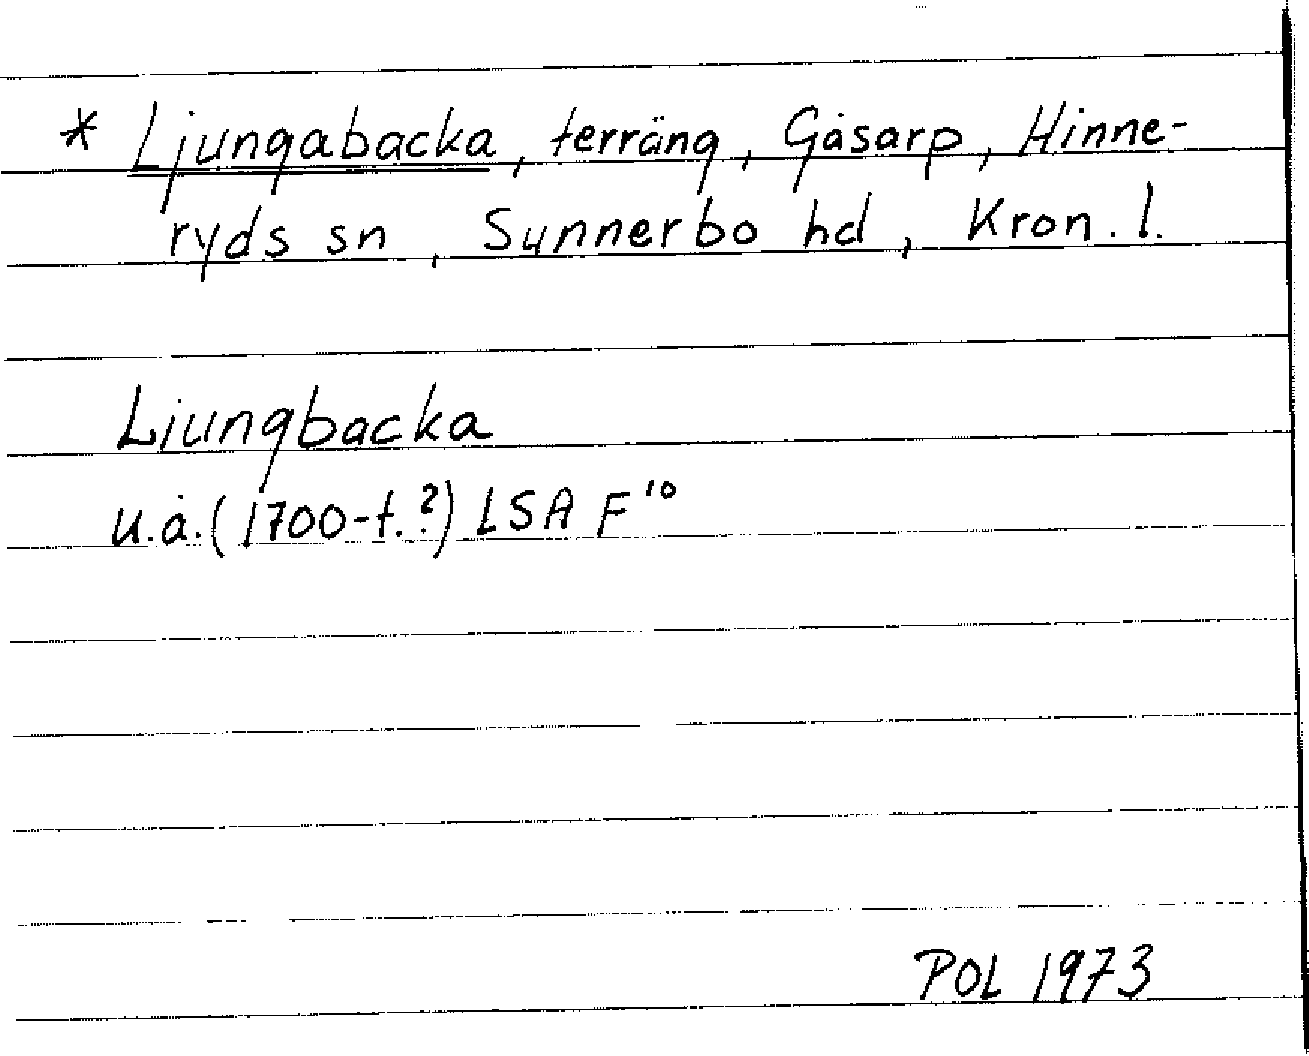 * Ljungabacka, terräng, Gåsarp, Hinne-
ryds sn, Sunnerbo hd, Kron. l.
Ljungbacka
u.å. (1700-t.?) LSA F¹⁰
POL 1973